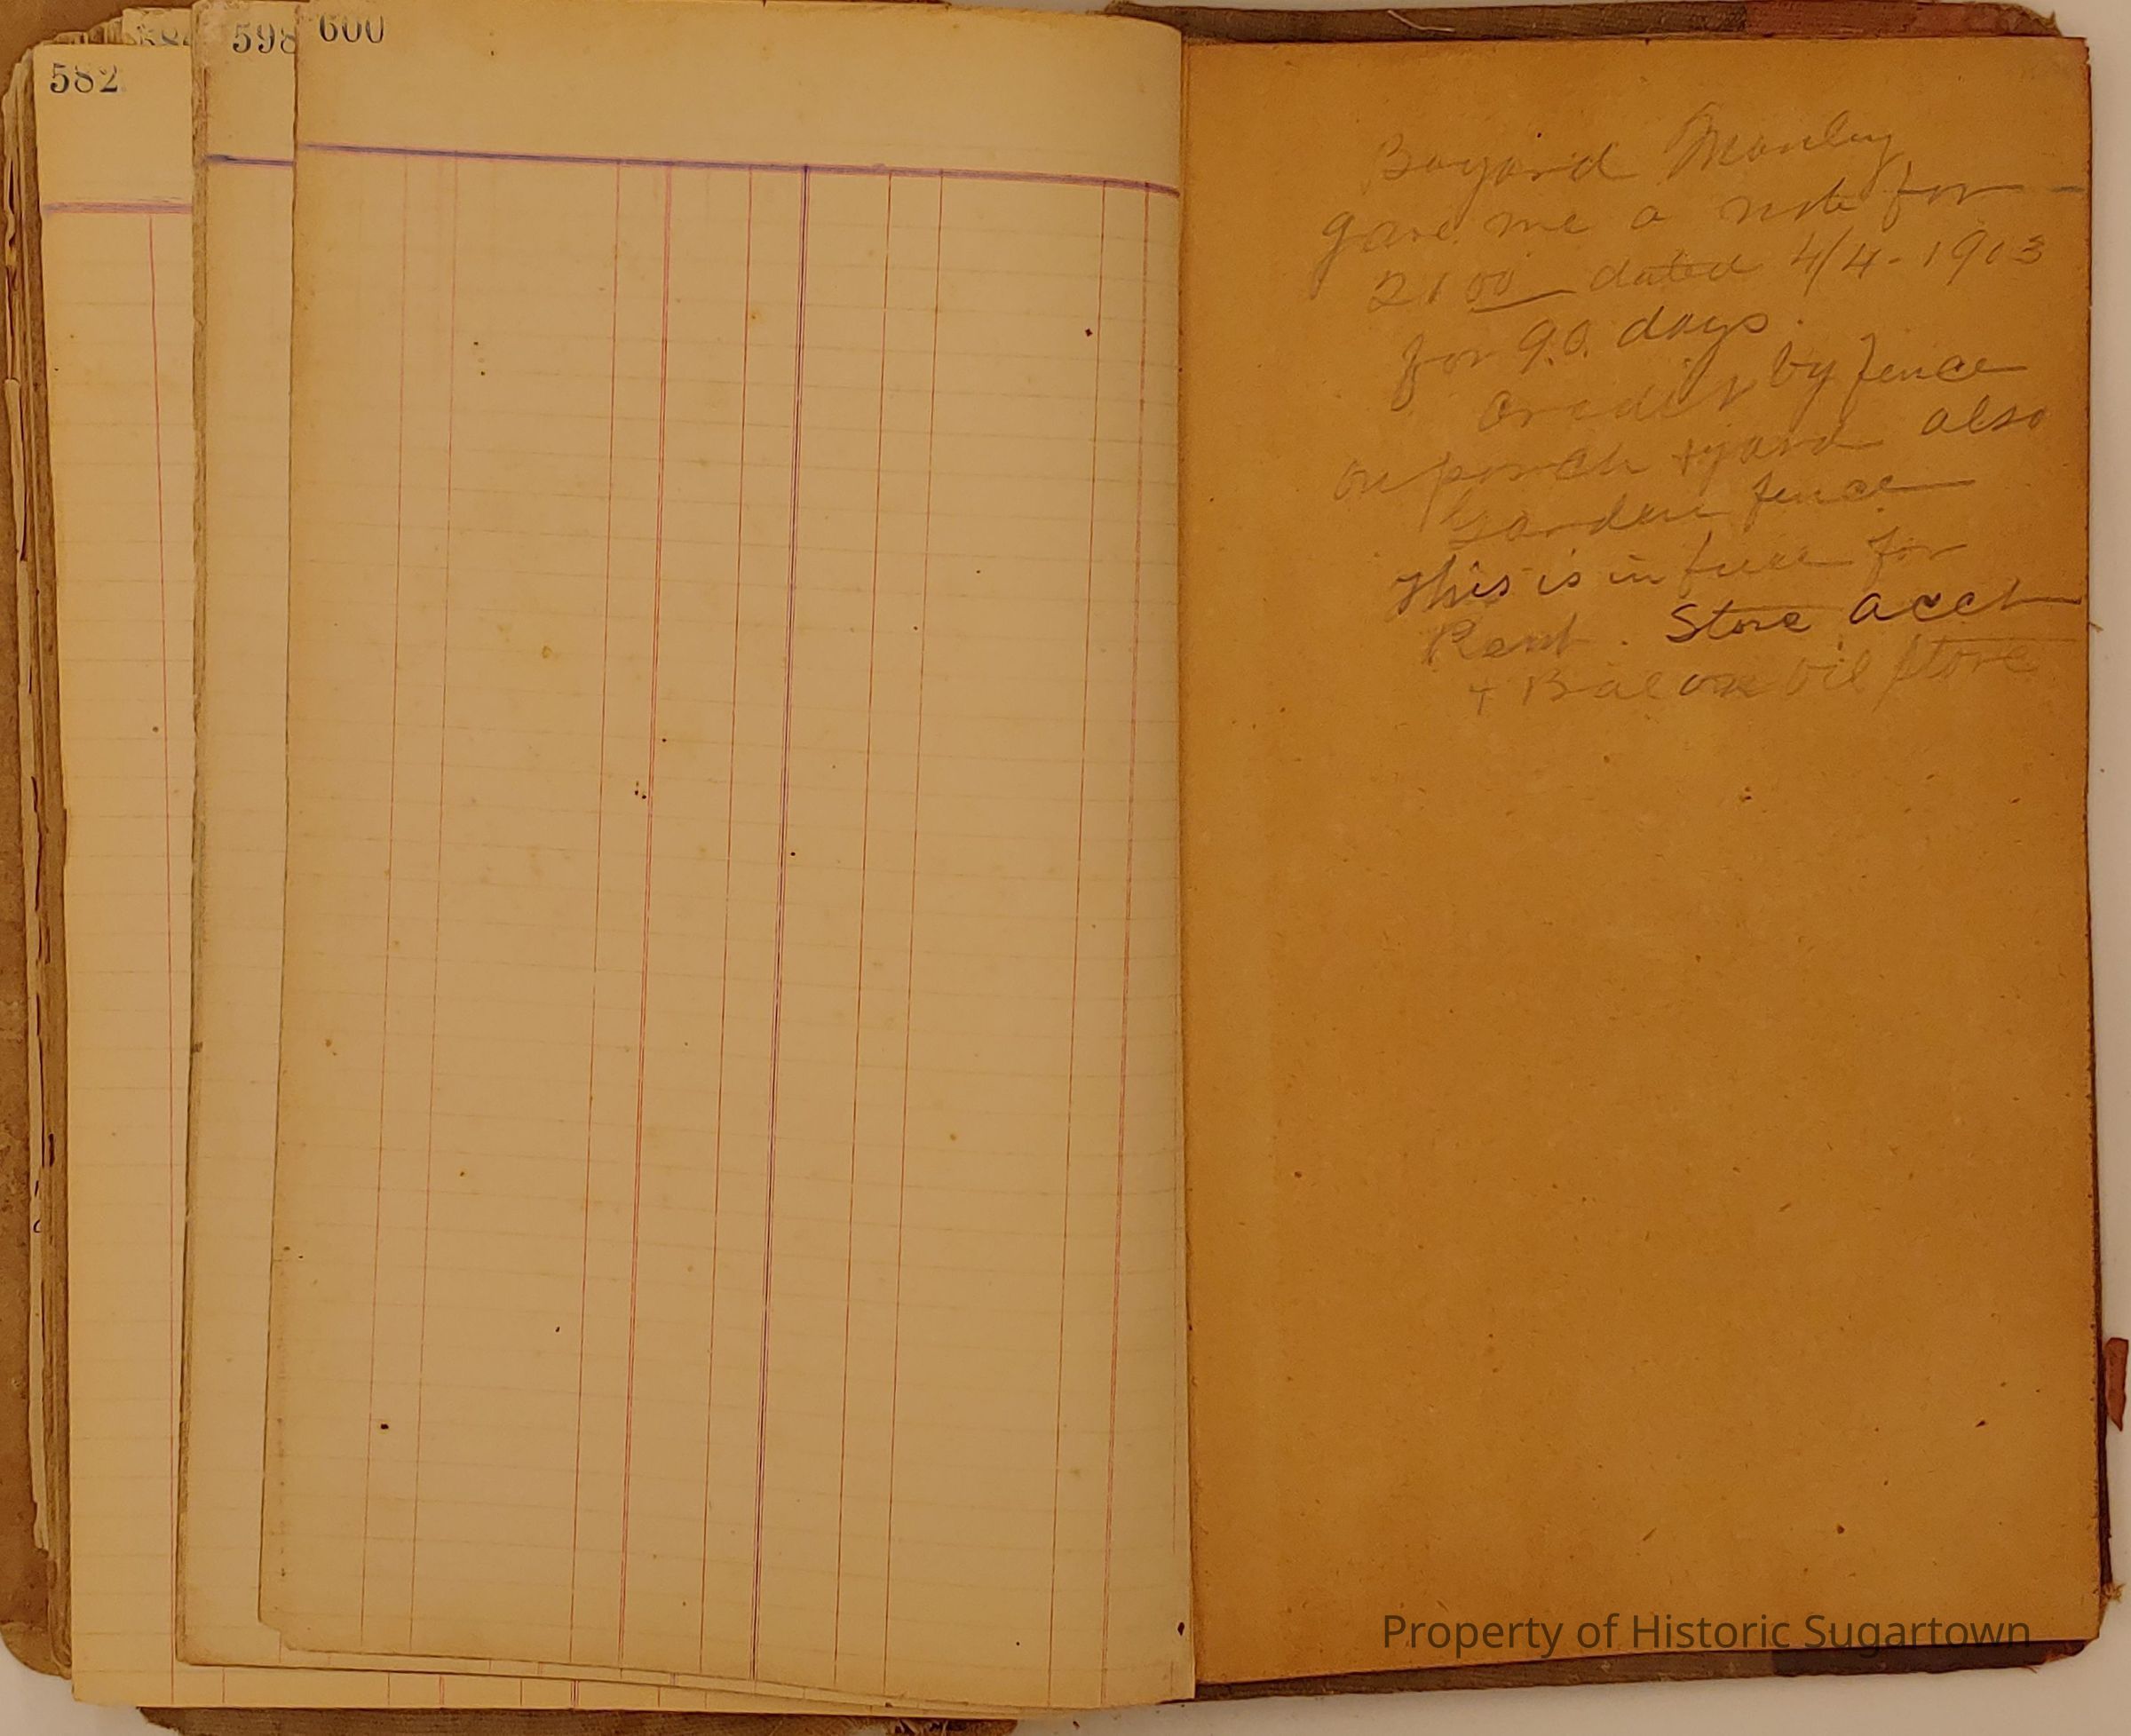 582
598
600
Bayard Manley
gave me a note for
21 00 dated 4/4-1903
for 90 days.
Credit by fence
on porch + yard also
Garden fence
This is in full for
Rent. Store acct
+ Bal on oil stove
Property of Historic Sugartown